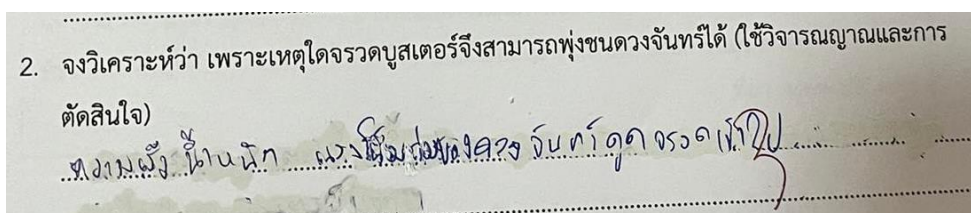 2. จงวิเคราะห์ว่า เพราะเหตุใดจรวดบูสเตอร์จึงสามารถพุ่งชนดวงจันทร์ได้ (ใช้วิจารณญาณและการ
ตัดสินใจ)
ความเร็ว น้ำหนัก แรงโน้มถ่วงของดวงจันทร์ดูดจรวดเข้าไป